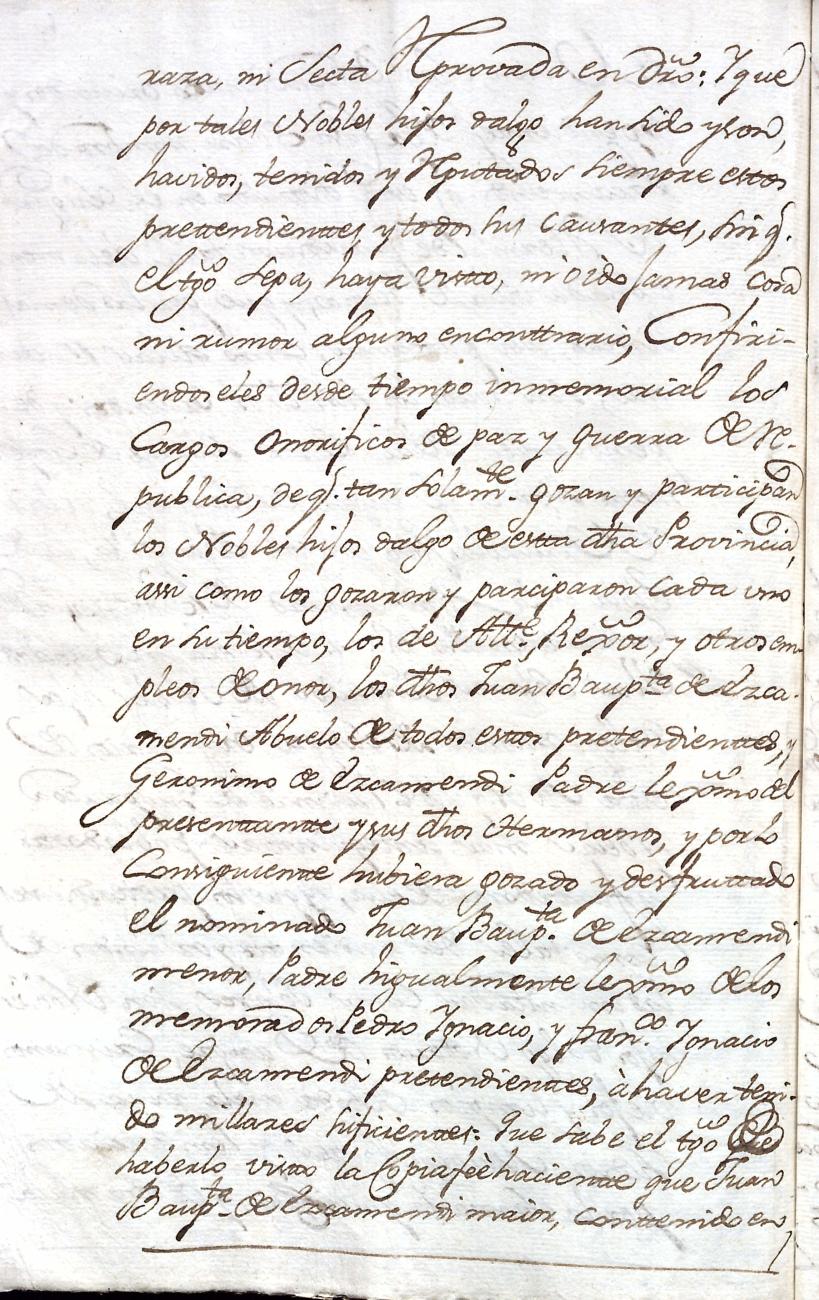 raza, ni Secta Rprovada en Dro: Y que
por tales Nobles hijos dalgo han sido y son,
havidos, tenidos y Rputados siempre estos
prettendienttes, y todos sus Causantes, sin q.
el tgo sepa, haya visto, ni oido Jamas Cosa
ni rumor alguno enconttrario, Confiri-
endoseles desde tiempo inmemorial los
Cargos Onorificos de paz y guerra de Re-
publica, de q. tan solamte. gozan y participan
los Nobles hijos dalgo de esta dha Provincia,
assi como los gozaron y parciparon Cada uno
en su tiempo, los de Alle, Rexor, y otros em-
pleos de onor, los dhos Juan Baupta de Ezca-
mendi Abuelo de todos estos pretendienttes, y
Geronimo de Ezcamendi Padre lexmo del
presentante y sus dhos Hermanos, y por lo
Consiguiente hubiera gozado y desfruttado
el nominado Juan Baupta. de Ezcamendi
menor, Padre higualmente lexmo de los
memorados Pedro Ygnacio, y franco. Ygnacio
de Ezcamendi pretendienttes, à haver teni-
do millares suficientes: Que sabe el tgo
haberlo visto la Copia feèhaciente que Juan
Baupta de Ezcamendi maior, conttenido en